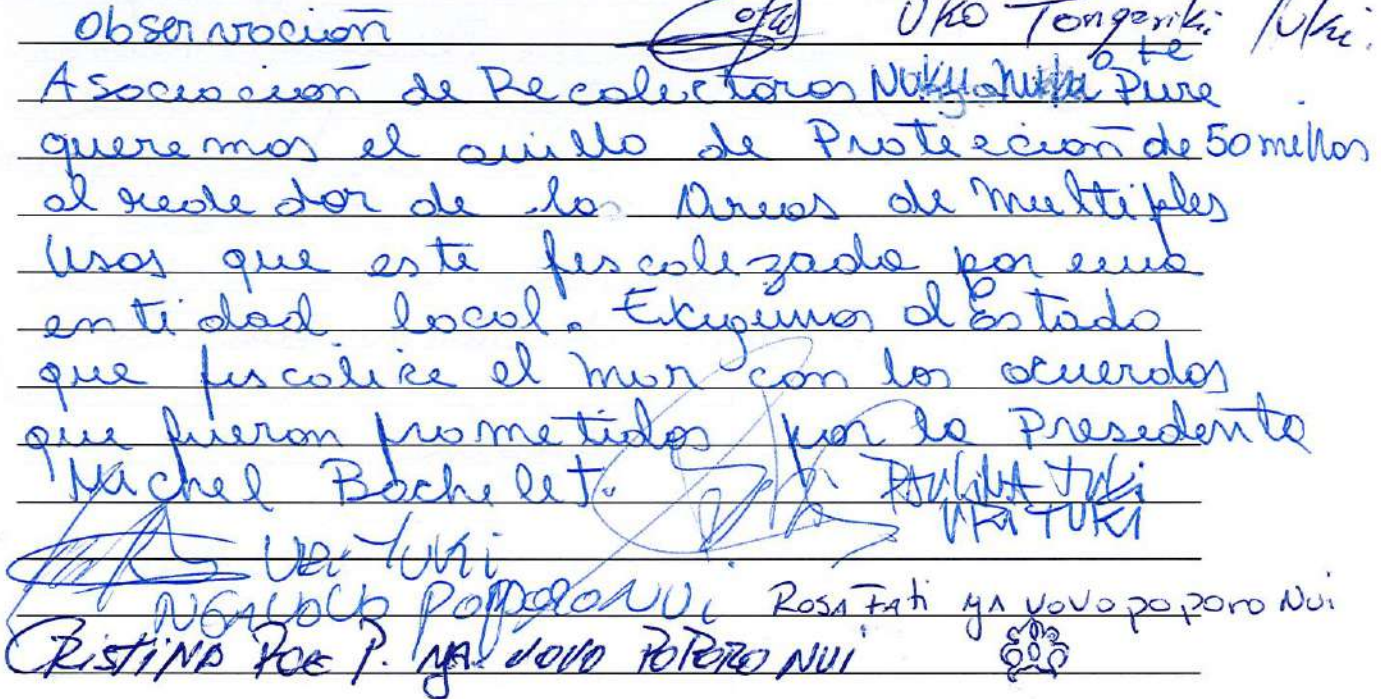 Observación
oko Uko Tongariki Tuki.
o te
Asociación de Recolectores Pure
queremos el anillo de Protección de 50 millas
al rededor de la Areas de Multiples
Usos que este fiscalizada por una
entidad local. Exigimos al Estado
que fiscalice el mar con los acuerdos
que fueron prometidos por la Presedenta
Michel Bachelet.
PAULINA TUKI
URI TUKI
URI TUKI
NGA VOVO POPORO NUI ROSA FATI NGA VOVO poporo Nui
CRISTINA POE P. NGA VOVO POPORO NUI